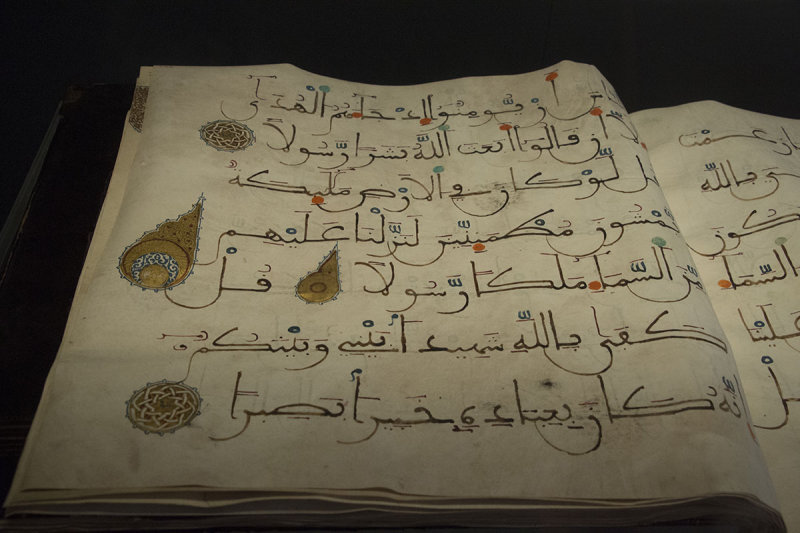 أن يومنوا إذ جاءهم الهدى
إلا أن قالوا أبعث الله بشرا رسولا
قل لو كان في الارض مليكة
يمشون مطمينين لنزلنا عليهم
من السماء ملكا رسولا قل
كفى بالله شهيدا بيني وبينكم
إنه كان بعباده خبيرا بصيرا
بالله
السما
علينا